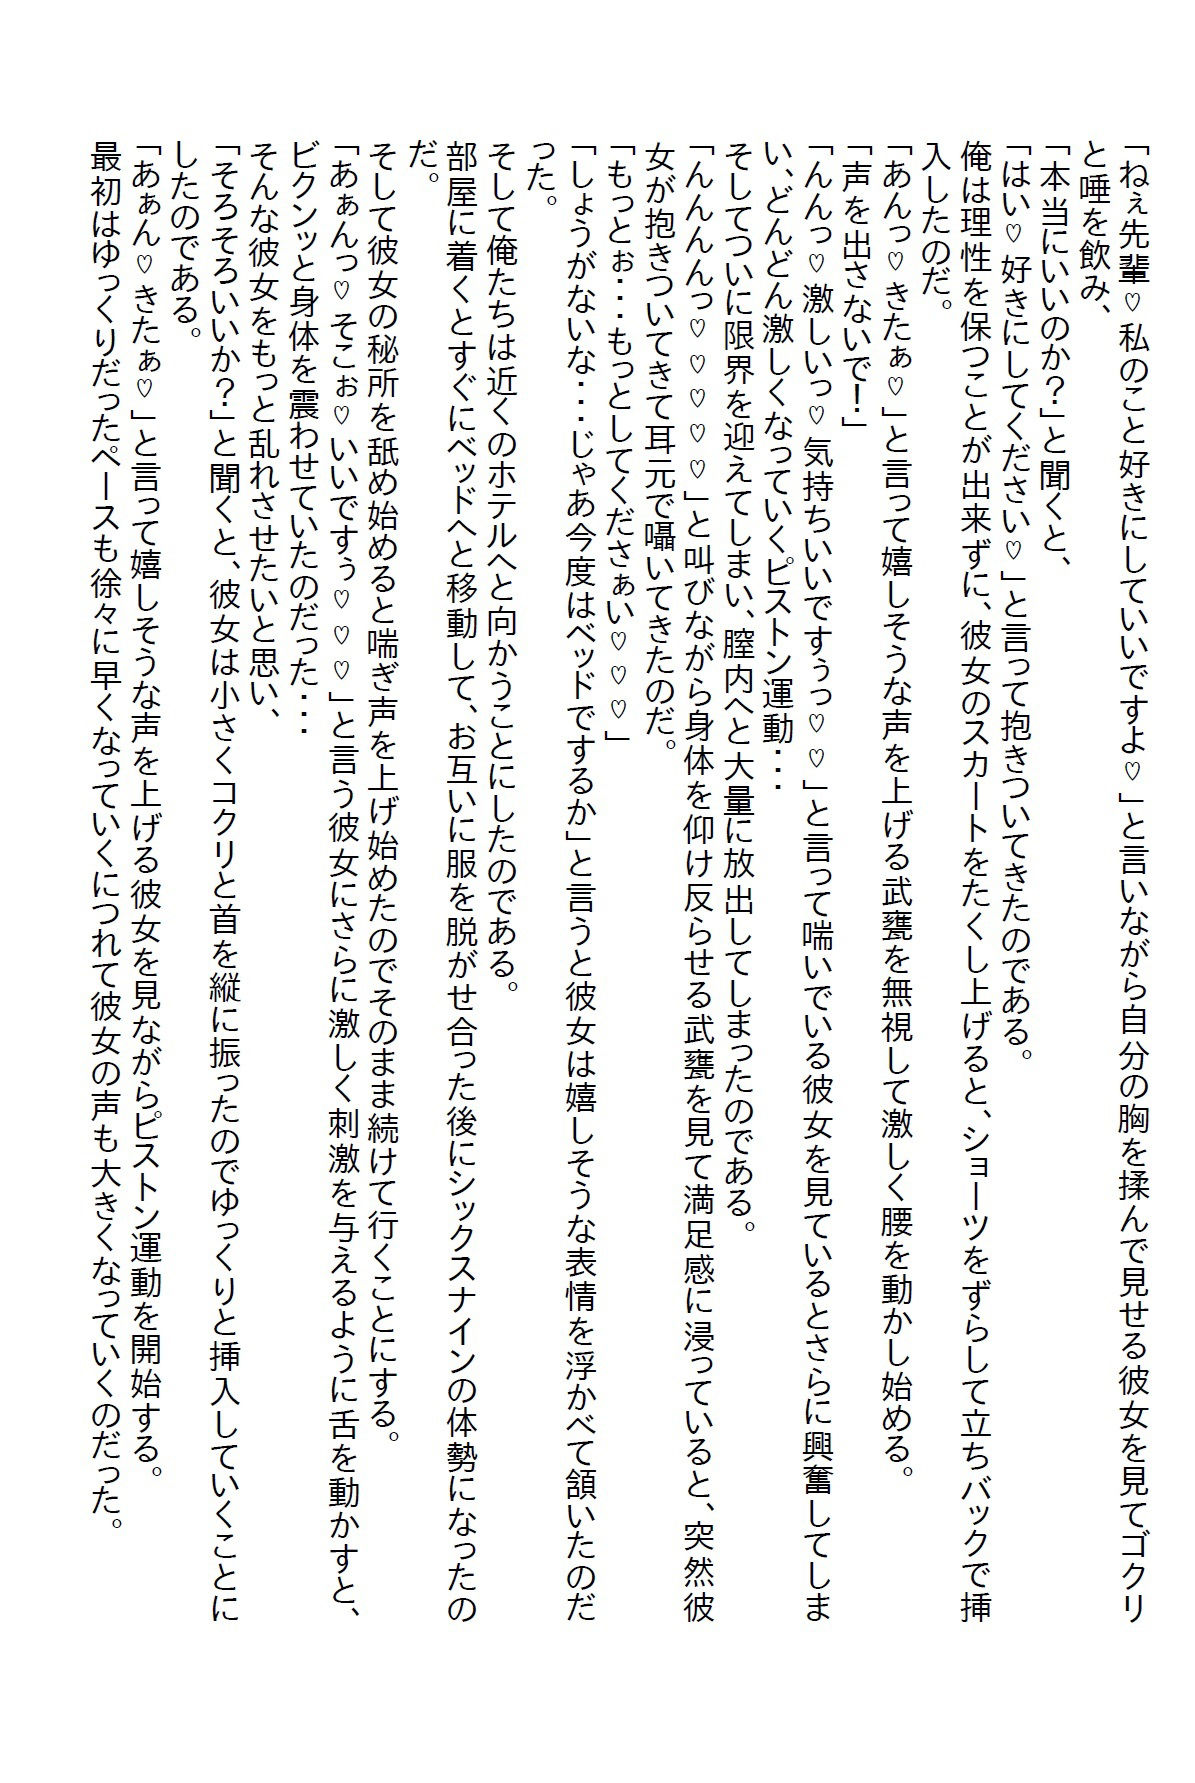 「ねぇ先輩♡私のこと好きにしていいですよ♡」と言いながら自分の胸を揉んで見せる彼女を見てゴクリ
と唾を飲み、
「本当にいいのか？」と聞くと、
「はい♡好きにしてください♡」と言って抱きついてきたのである。
俺は理性を保つことが出来ずに、彼女のスカートをたくし上げると、ショーツをずらして立ちバックで挿
入したのだ。
「あんっ♡きたぁ♡」と言って嬉しそうな声を上げる武甕を無視して激しく腰を動かし始める。
「声を出さないで！」
「んんっ♡激しいっ♡気持ちいいですぅっ♡♡」と言って喘いでいる彼女を見ているとさらに興奮してしま
い、どんどん激しくなっていくピストン運動・・・
そしてついに限界を迎えてしまい、膣内へと大量に放出してしまったのである。
「んんんんっ♡♡♡♡♡」と叫びながら身体を仰け反らせる武甕を見て満足感に浸っていると、突然彼
女が抱きついてきて耳元で囁いてきたのだ。
「もっとぉ・・・もっとしてくださぁい♡♡♡」
「しょうがないな・・・じゃあ今度はベッドでするか」と言うと彼女は嬉しそうな表情を浮かべて頷いたのだ
った。
そして俺たちは近くのホテルへと向かうことにしたのである。
部屋に着くとすぐにベッドへと移動して、お互いに服を脱がせ合った後にシックスナインの体勢になったの
だ。
そして彼女の秘所を舐め始めると喘ぎ声を上げ始めたのでそのまま続けて行くことにする。
「あぁんっ♡そこぉ♡いいですぅ♡♡♡」と言う彼女にさらに激しく刺激を与えるように舌を動かすと、
ビクンッと身体を震わせていたのだった・・・
そんな彼女をもっと乱れさせたいと思い、
「そろそろいいか？」と聞くと、彼女は小さくコクリと首を縦に振ったのでゆっくりと挿入していくことに
したのである。
「あぁん♡きたぁ♡」と言って嬉しそうな声を上げる彼女を見ながらピストン運動を開始する。
最初はゆっくりだったペースも徐々に早くなっていくにつれて彼女の声も大きくなっていくのだった。